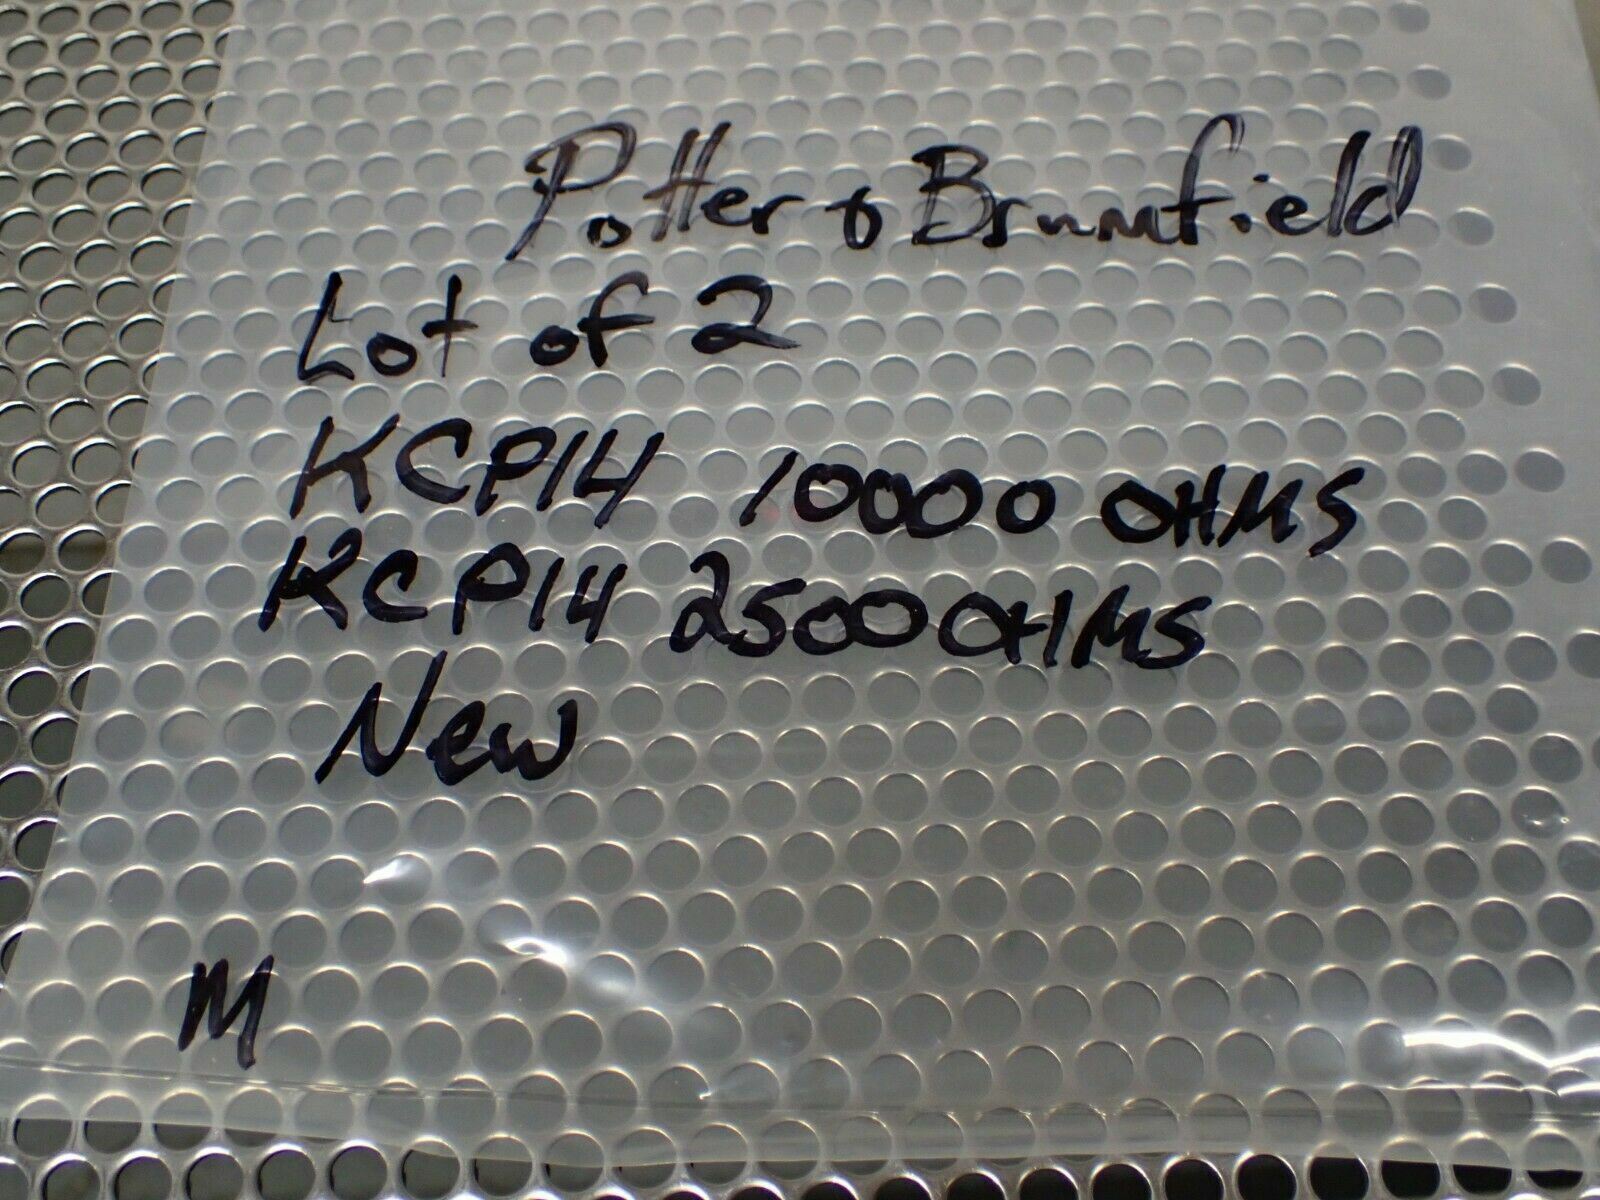 Potter & Brumfield
Lot of 2
KCP14 10000 OHMS
KCP14 2500 OHMS
New
M